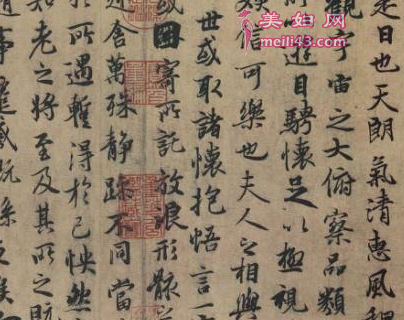 美妇网
meili43.com
是日也天朗氣清惠風
觀宇宙之大俯察品類
以遊目騁懷足以極視
娛信可樂也夫人之相與
世或取諸懷抱悟言一
或因寄所託放浪形骸
舍萬殊靜躁不同當
於所遇暫得於己怏然
知老之將至及其所之既
事遷感